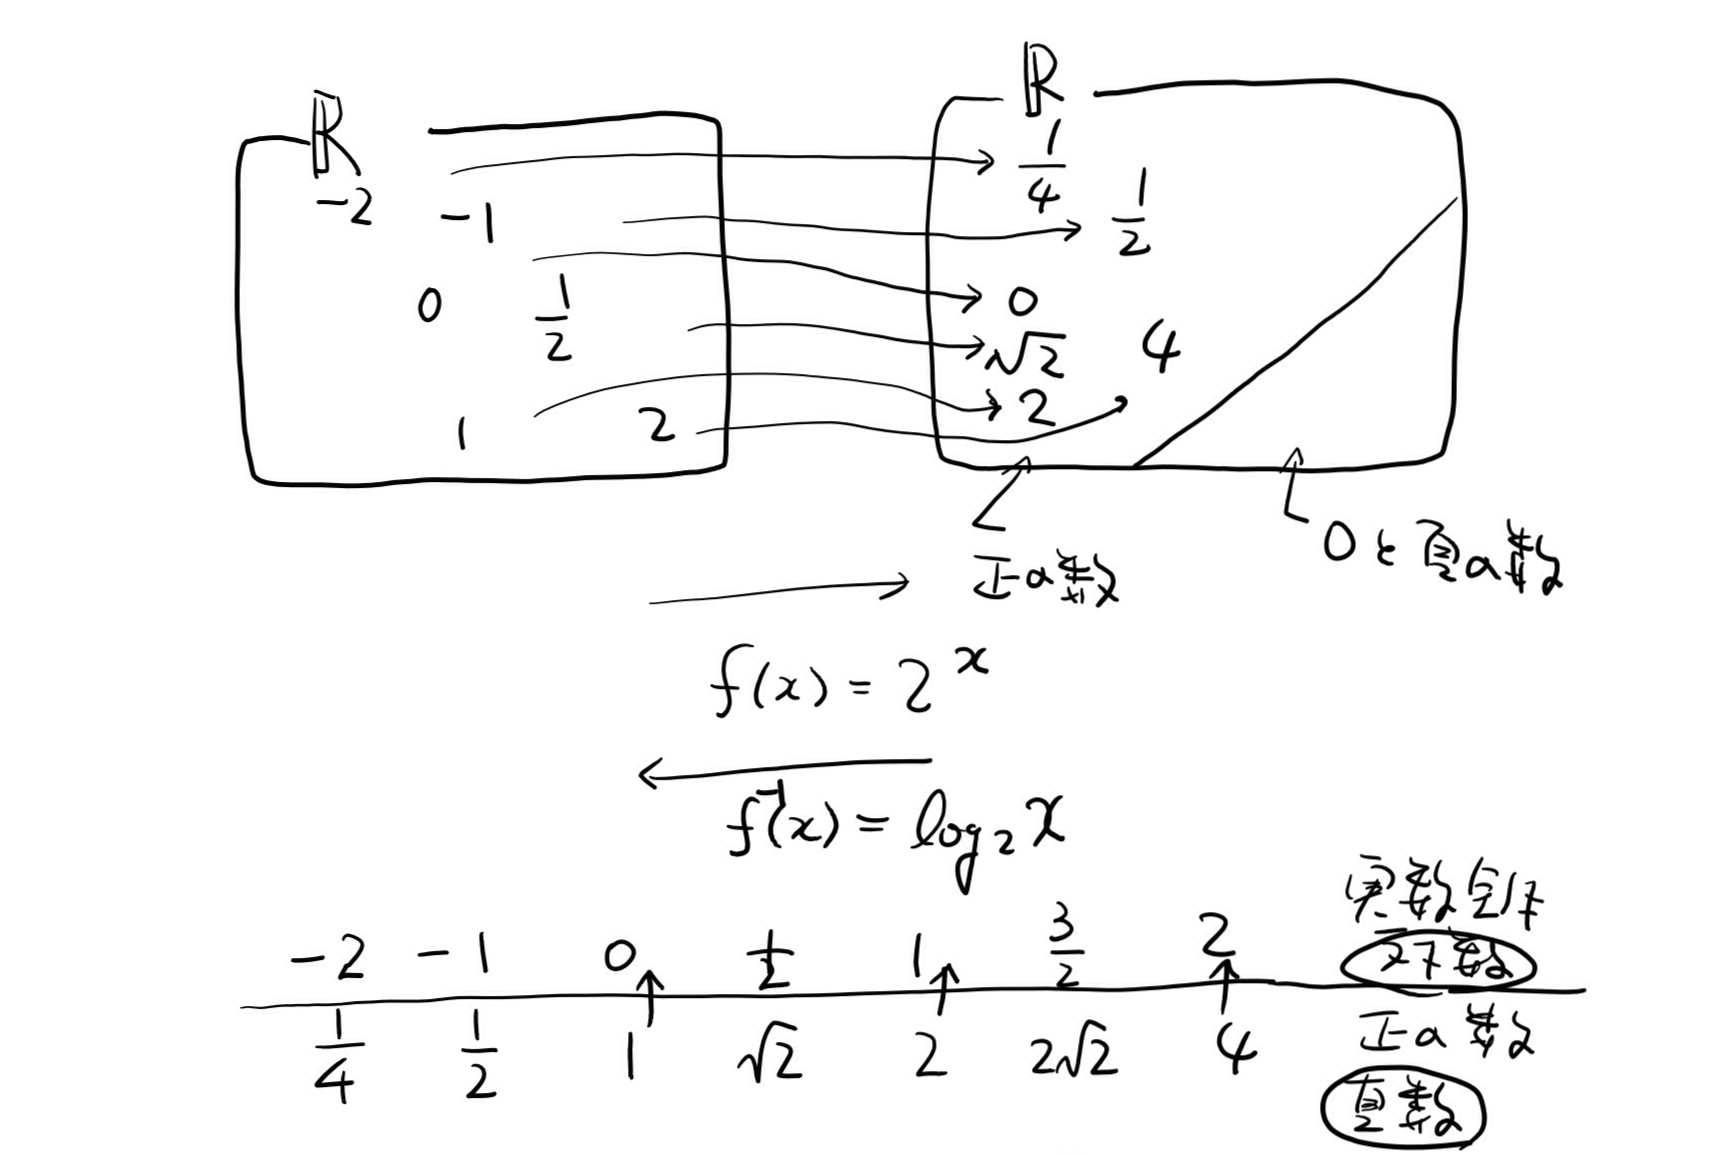 ℝ
-2 -1
0 1/2
1 2
ℝ
1/4
1/2
0
√2 4
2
正の数
0と負の数
f(x) = 2^x
f^-1(x) = log_2 x
実数全体
-2 -1 0 1/2 1 3/2 2 対数
1/4 1/2 1 √2 2 2√2 4 正の数
真数